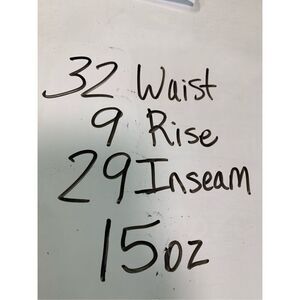 32 Waist
9 Rise
29 Inseam
15oz